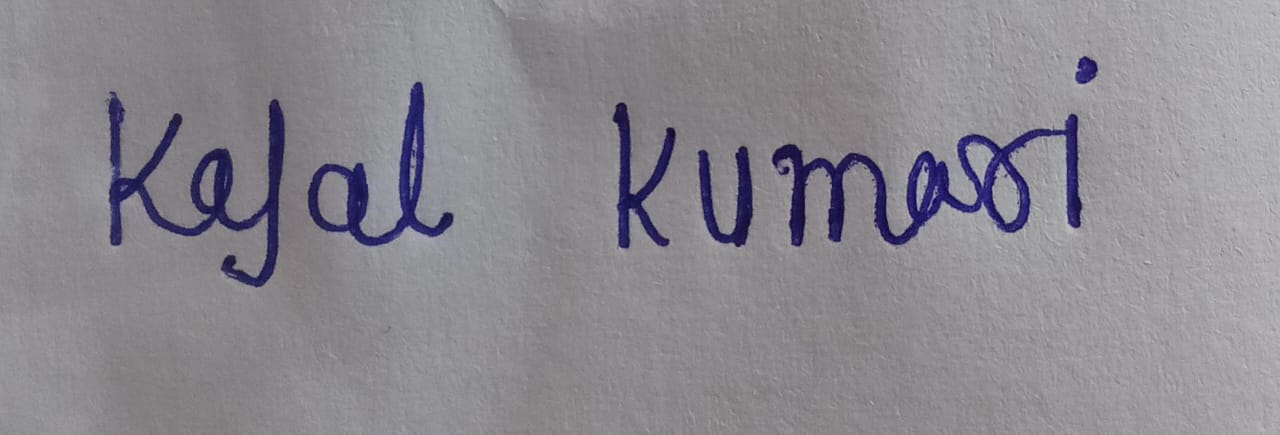 Kajal Kumari